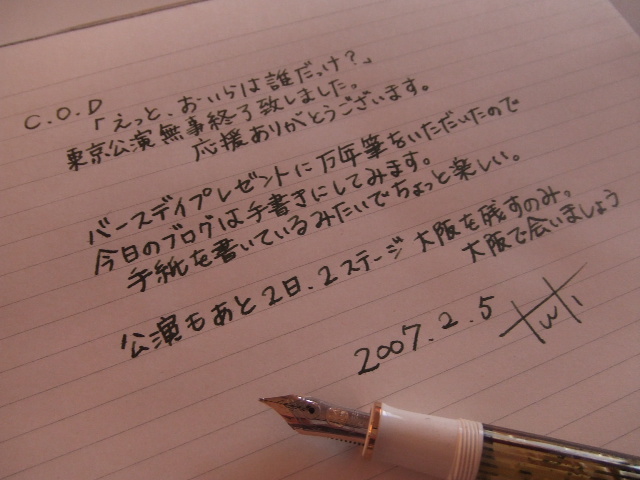 C.O.D
「えっと、おいらは誰だっけ？」
東京公演無事終了致しました。
応援ありがとうございます。
バースデイプレゼントに万年筆をいただいたので
今日のブログは手書きにしてみます。
手紙を書いているみたいでちょっと楽しい。
公演もあと2日、2ステージ 大阪を残すのみ。
大阪で会いましょう
2007.2.5